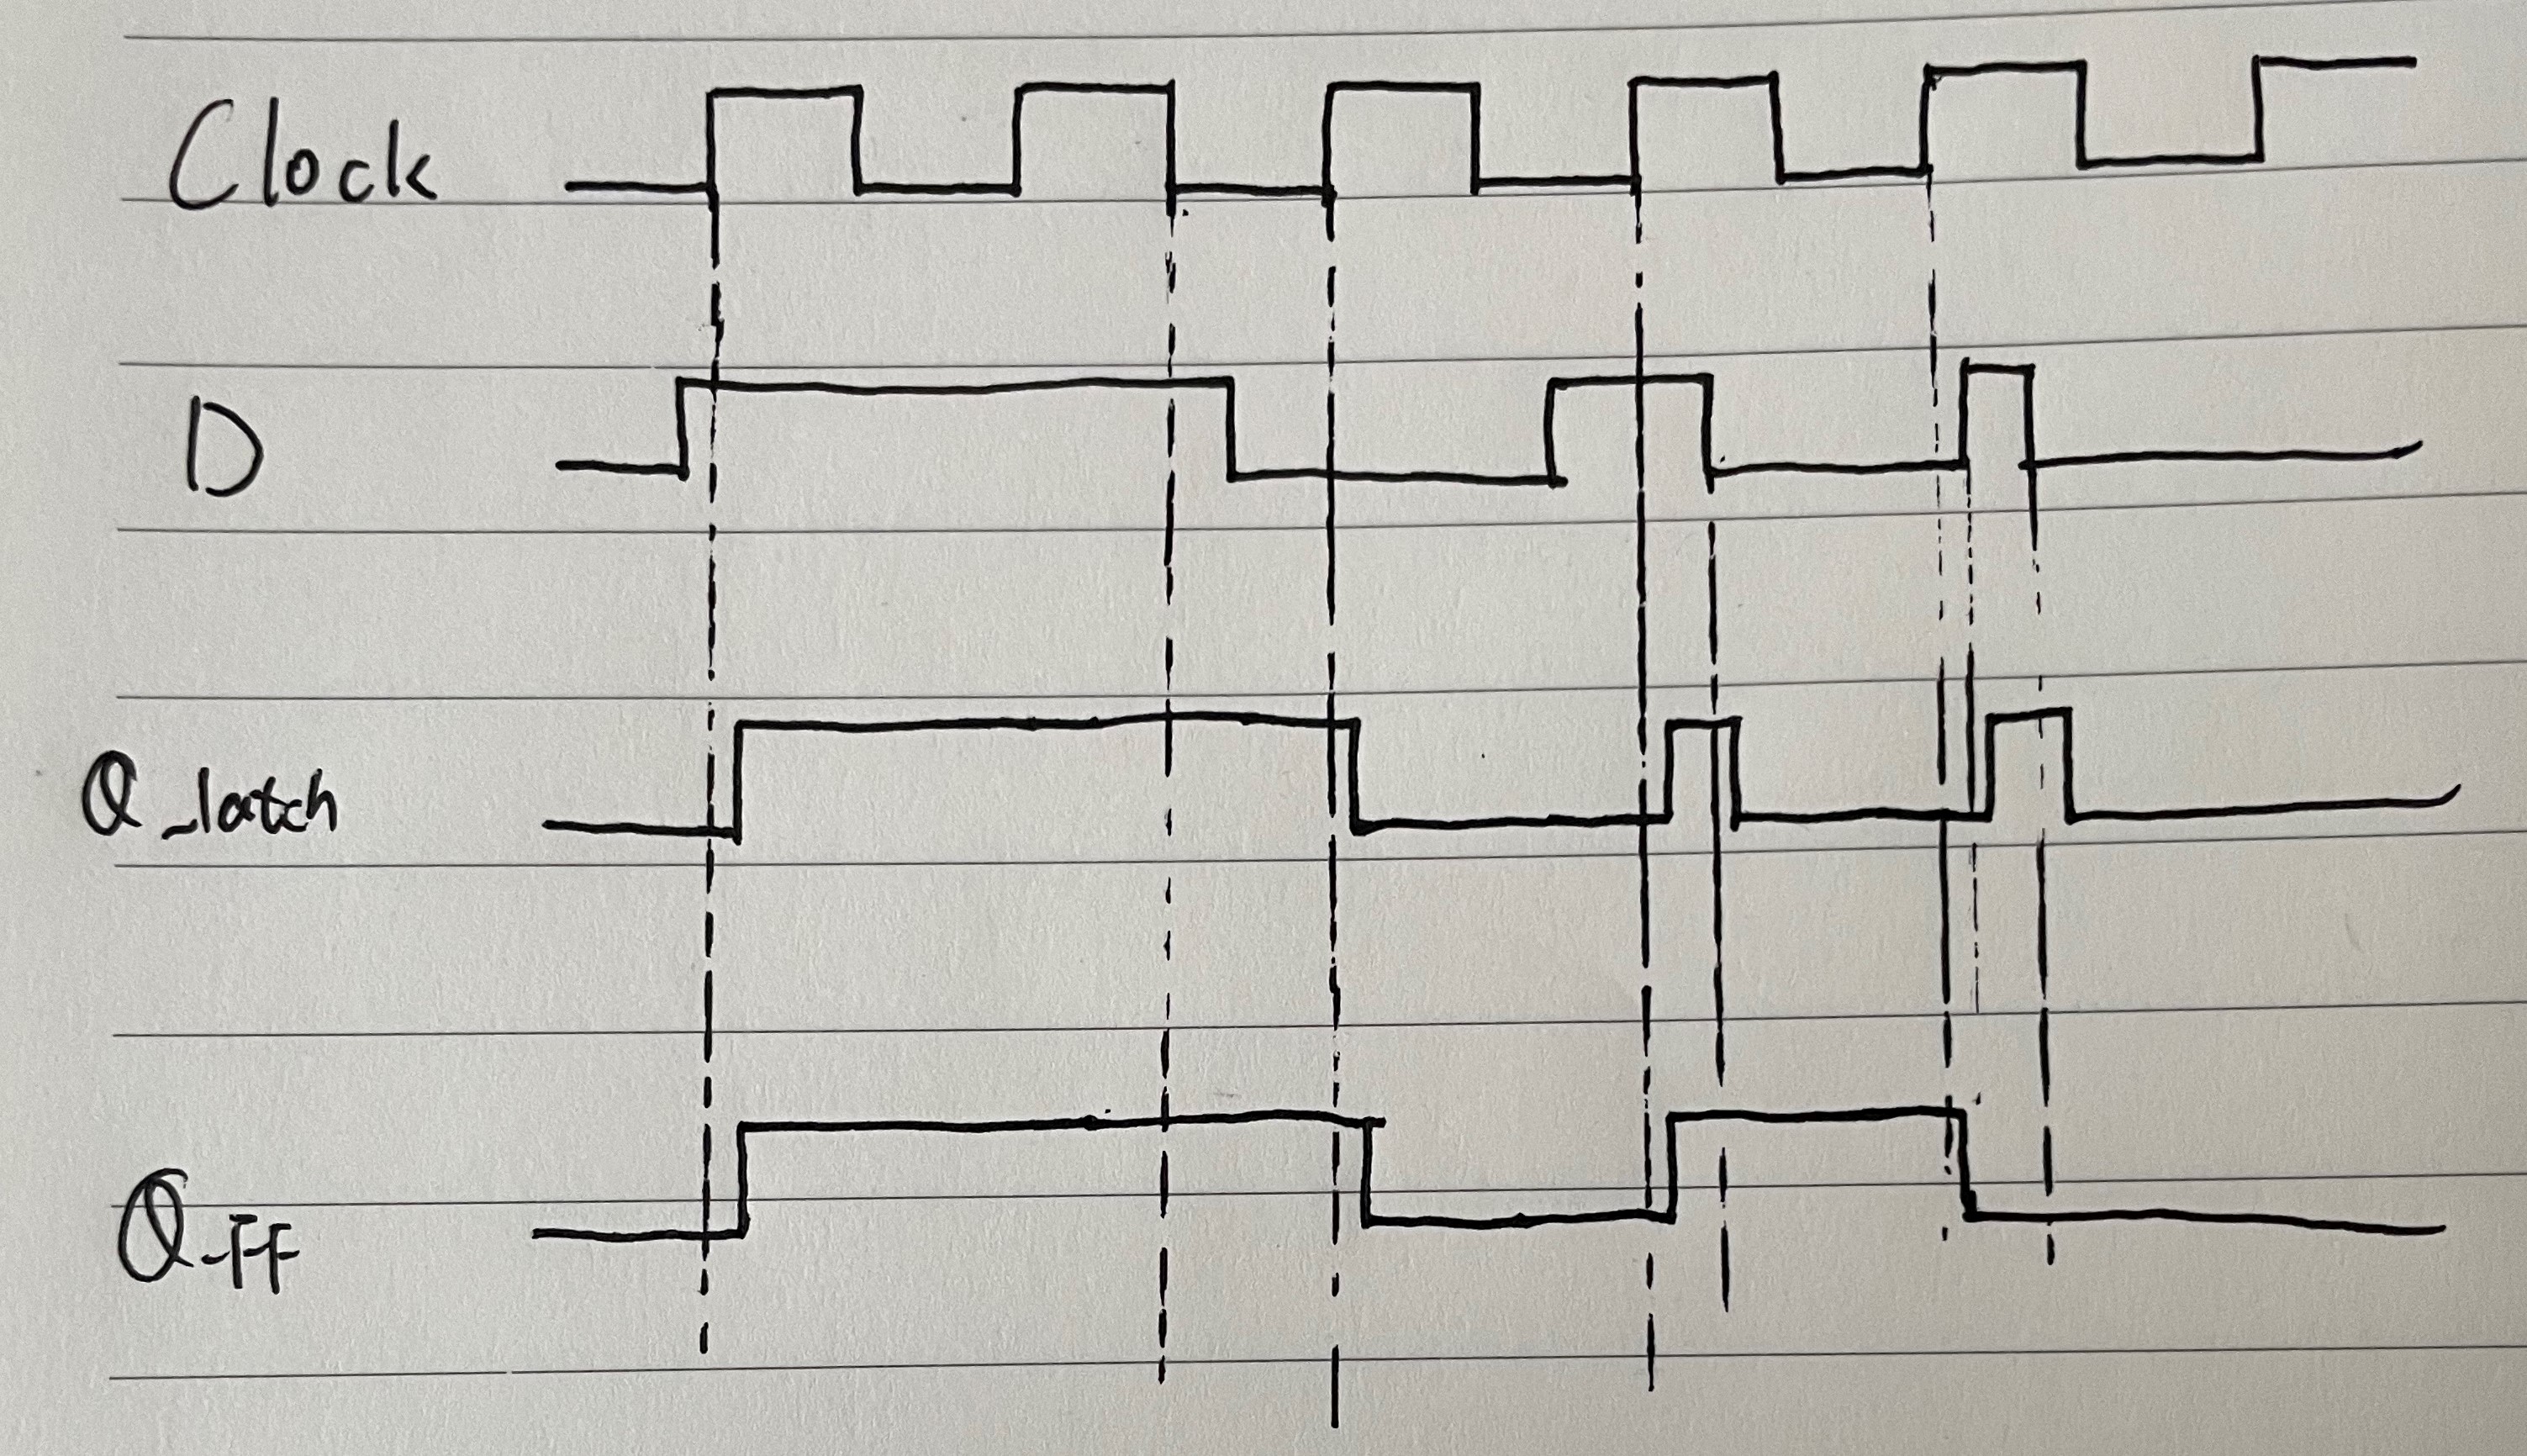 Clock
D
Q_latch
Q_FF